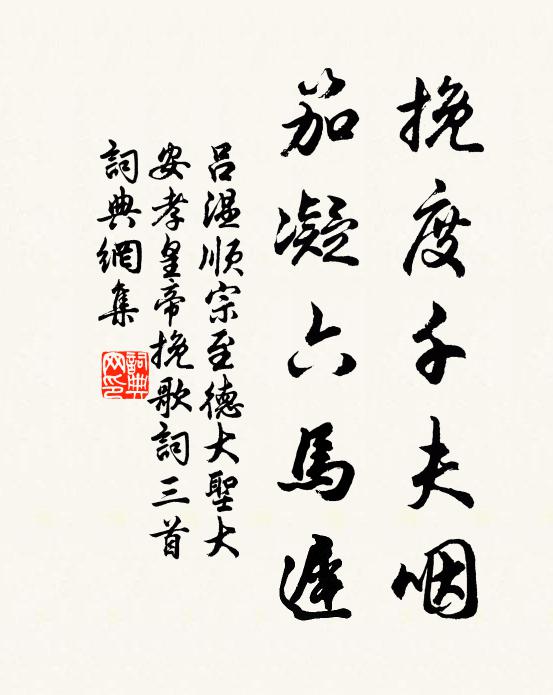 挽度千夫咽
笳凝六馬遲
呂温順宗至德大聖大
安孝皇帝挽歌詞三首
詞典網集
詞典
网印